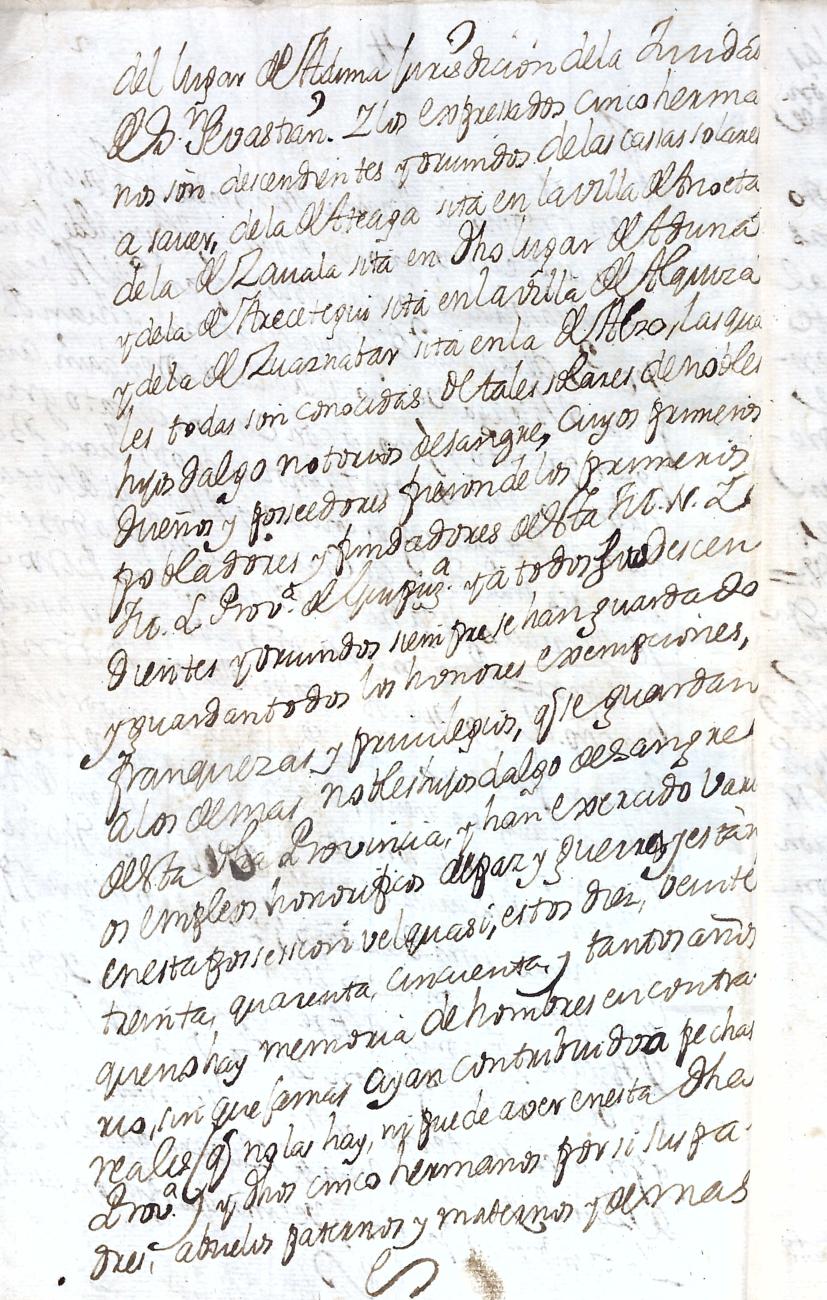 del lugar de Aduna Jurisdicion dela Ziudad
de Sn. Sevastian. Y los expressados cinco herma
nos són descendientes y oriundos de las cassas solares
a saver, dela de Ateaga sita en la villa de Anoeta
dela de Zavala sita en dho lugar de Aduna
y dela de Arecetegui sita en la villa de Alquiza
y dela de Zuaznabar sita enla de Alzo, las qua
les todas son conocidas de tales solares de nobles
hijos dalgo notorios desangre, cuyos primeros
dueños y posseedores fueron delos primeros
pobladores y fundadores de esta M. N. Y
M. L. Prova. de Guipuza. y a todos sus Descen
dientes y oriundos siempre se han guardado
y guardan todos los honores exempciones,
franquezas y privilegios, q se guardan
a los demas nobles hijos dalgo de sangre
de esta dha Provincia, y hañ exercido vari
os empleos honorificos de paz y guerra, y están
en esta possession vel quasi, estos diez, veinte
treinta, quarenta, cincuenta, y tantos años
queno hay memoria de hombres en contra
rio, sin que jamás ayan contribuido a pechas
reales (q no las hay, ni puede aver enesta dha
Prova.) y dhos cinco hermanos por si sus pa
dres, abuelos paternos y maternos y demas